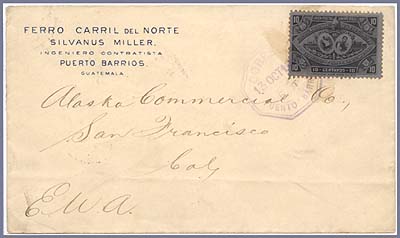 FERRO CARRIL DEL NORTE
SILVANUS MILLER,
INGENIERO CONTRATISTA
PUERTO BARRIOS.
GUATEMALA.
10 10
10 CENTAVOS 10
OCT
PUERTO
Alaska Commercial Co.,
San Francisco
Cal,
E.W.A.